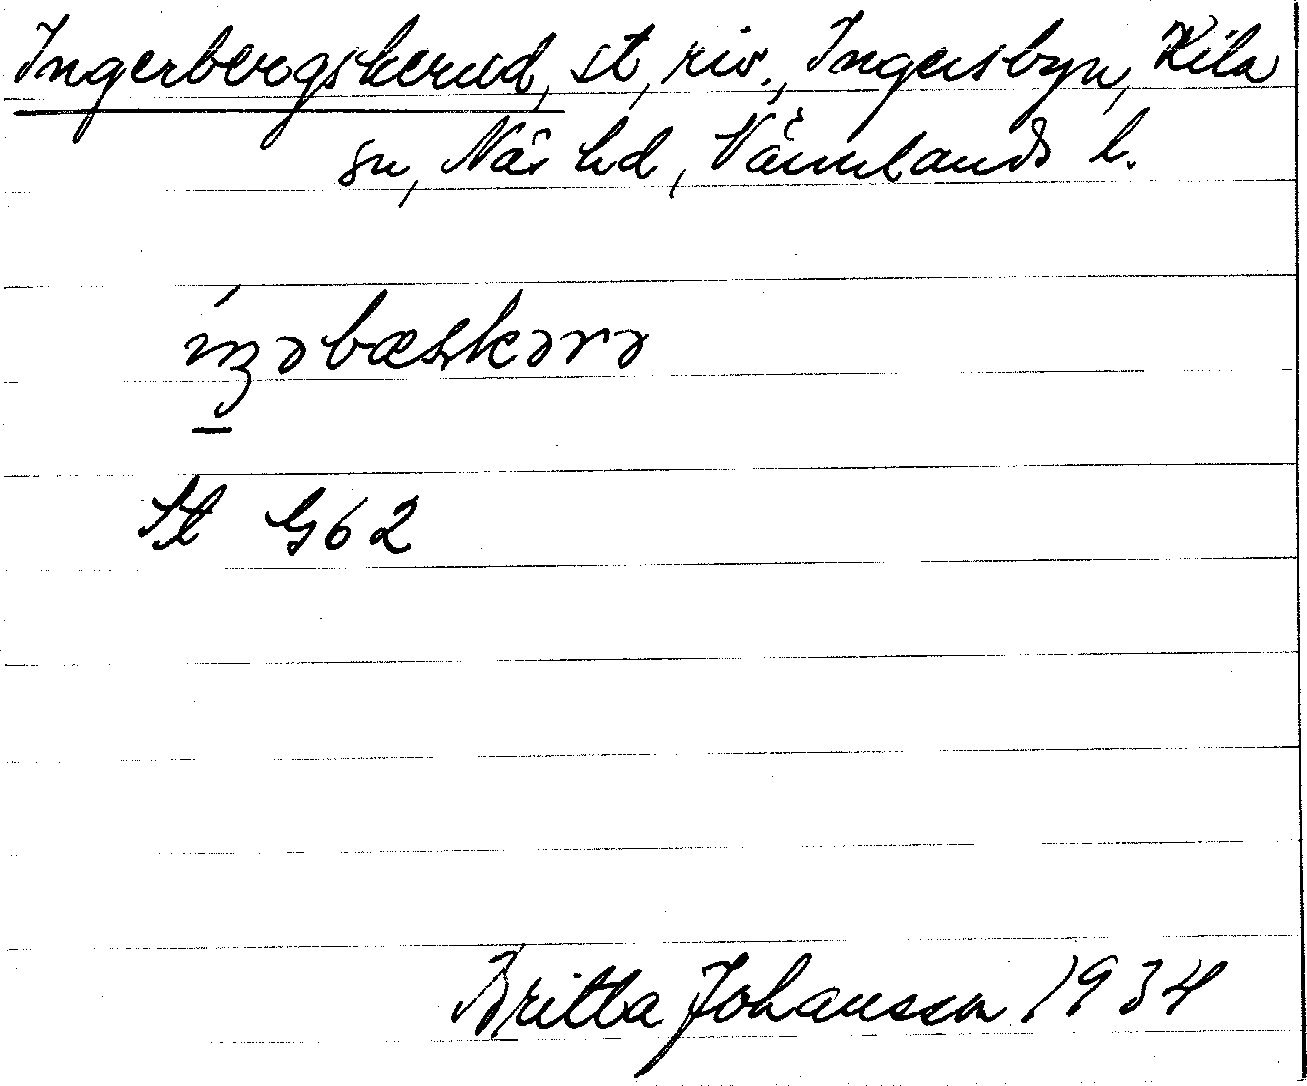 Ingerbergskerud, st, riv., Ingersbyn, Kila
sn, Näs hd, Värmlands l.
íŋəbæskərə
St G62
Britta Johansson 1934